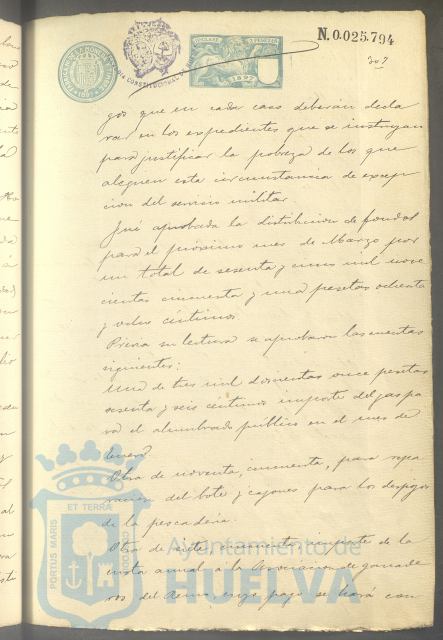 N.0.025.794
307
gos que en cada caso deberán decla
rar en los expedientes que se instruyan
para justificar la pobreza de los que
aleguen esta circunstancia de exep
cion del servicio militar
Fué aprobada la distribucion de fondos
para el próximo mes de Marzo por
un total de sesenta y cinco mil nove
cientas cincuenta y una pesetas ochenta
y ocho céntimos
Prévia su lectura se aprobaron las cuentas
siguientes:
Una de tres mil doscientas once pesetas
sesenta y seis céntimos importe del gas pa
ra el alumbrado público en el mes de
Enero.
Otra de noventa, cincuenta, para repa
racion del bote y cajones para los despojos
de la pescadería.
Otra de siete, cincuenta importe de la
cuota anual á la Asociacion de ganade
ros del Reino, cuyo pago se hará con
1897
PORTUS MARIS ET TERRAE CUSTODIA
Ayuntamiento de
HUELVA